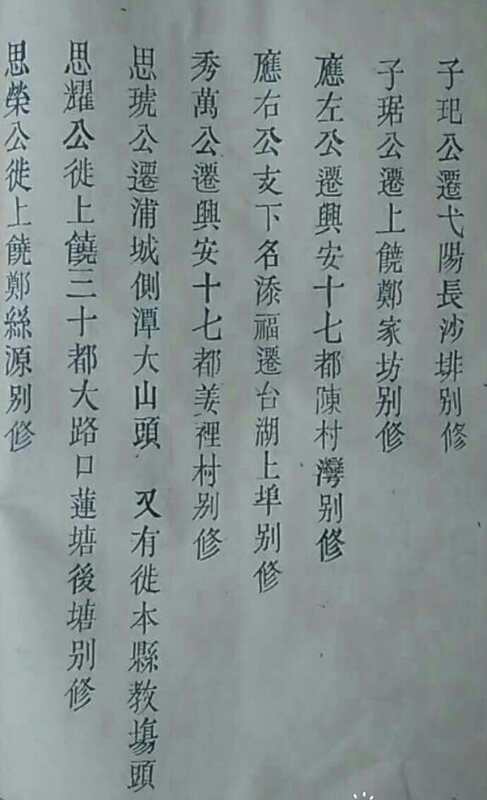 子玘公遷弋陽長沙埂別修
子琚公遷上饒鄭家坊別修
應左公遷興安十七都陳村灣別修
應右公支下名添福遷台湖上埠別修
秀萬公遷興安十七都姜裡村別修
思琥公遷浦城側潭大山頭 又有徙本縣教塲頭
思耀公徙上饒三十都大路口蓮塘後塘別修
思榮公徙上饒鄭絲源別修